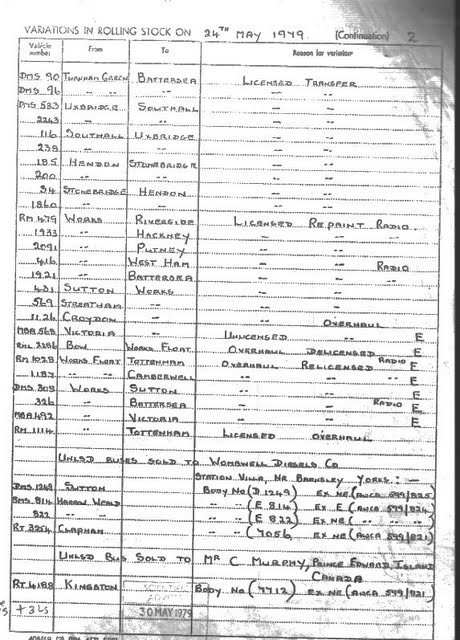 VARIATIONS IN ROLLING STOCK ON 24TH MAY 1979 (Continuation) 2
Vehicle number From To Reason for variation
DMS. 90 TURNHAM GREEN BATTERSEA LICENSED TRANSFER
DMS. 96 -- -- -- -- --
DMS. 583 UXBRIDGE SOUTHALL -- --
2243 -- -- -- --
116 SOUTHALL UXBRIDGE -- --
239 -- -- -- --
185 HENDON STONEBRIDGE -- --
200 -- -- -- --
34 STONEBRIDGE HENDON -- --
1860 -- -- -- --
RM. 479 WORKS RIVERSIDE LICENSED REPAINT RADIO.
1933 -- HACKNEY -- --
2091 -- PUTNEY -- --
416 -- WEST HAM -- -- RADIO
1921 -- BATTERSEA -- --
431 SUTTON WORKS -- --
569 STREATHAM -- -- --
1126 CROYDON -- -- OVERHAUL
MBA. 568 VICTORIA -- UNLICENSED -- E
RML. 2286 BOW WORKS FLOAT OVERHAUL DELICENSED E
RM. 1028 WORKS FLOAT TOTTENHAM OVERHAUL RELICENSED RADIO E
1187 -- CAMBERWELL -- -- E
DMS. 309 WORKS SUTTON -- -- E
326 -- BATTERSEA -- -- RADIO E
MBA. 492 -- VICTORIA -- -- E
RM. 1114 -- TOTTENHAM LICENSED OVERHAUL
UNLSD BUSES SOLD TO WOMBWELL DIESELS CO
STATION VILLA, NR BARNSLEY YORKS: -
DMS. 1249 SUTTON BODY NO (D 1249) EX. NE (AWCA 599/825)
SMS. 814 HARROW WEALD -- (E 814) EX E (AWCA 599/824)
822 -- -- (E 822) EX NE ( -- -- )
RT. 3254 CLAPHAM -- (7056) EX NE (AWCA 599/821)
UNLSD BUS SOLD TO MR C MURPHY, PRINCE EDWARD ISLAND
CANADA
RT. 4188 KINGSTON BODY NO (7712) EX. NE (AWCA 599/821)
+3LS 30 MAY 1979